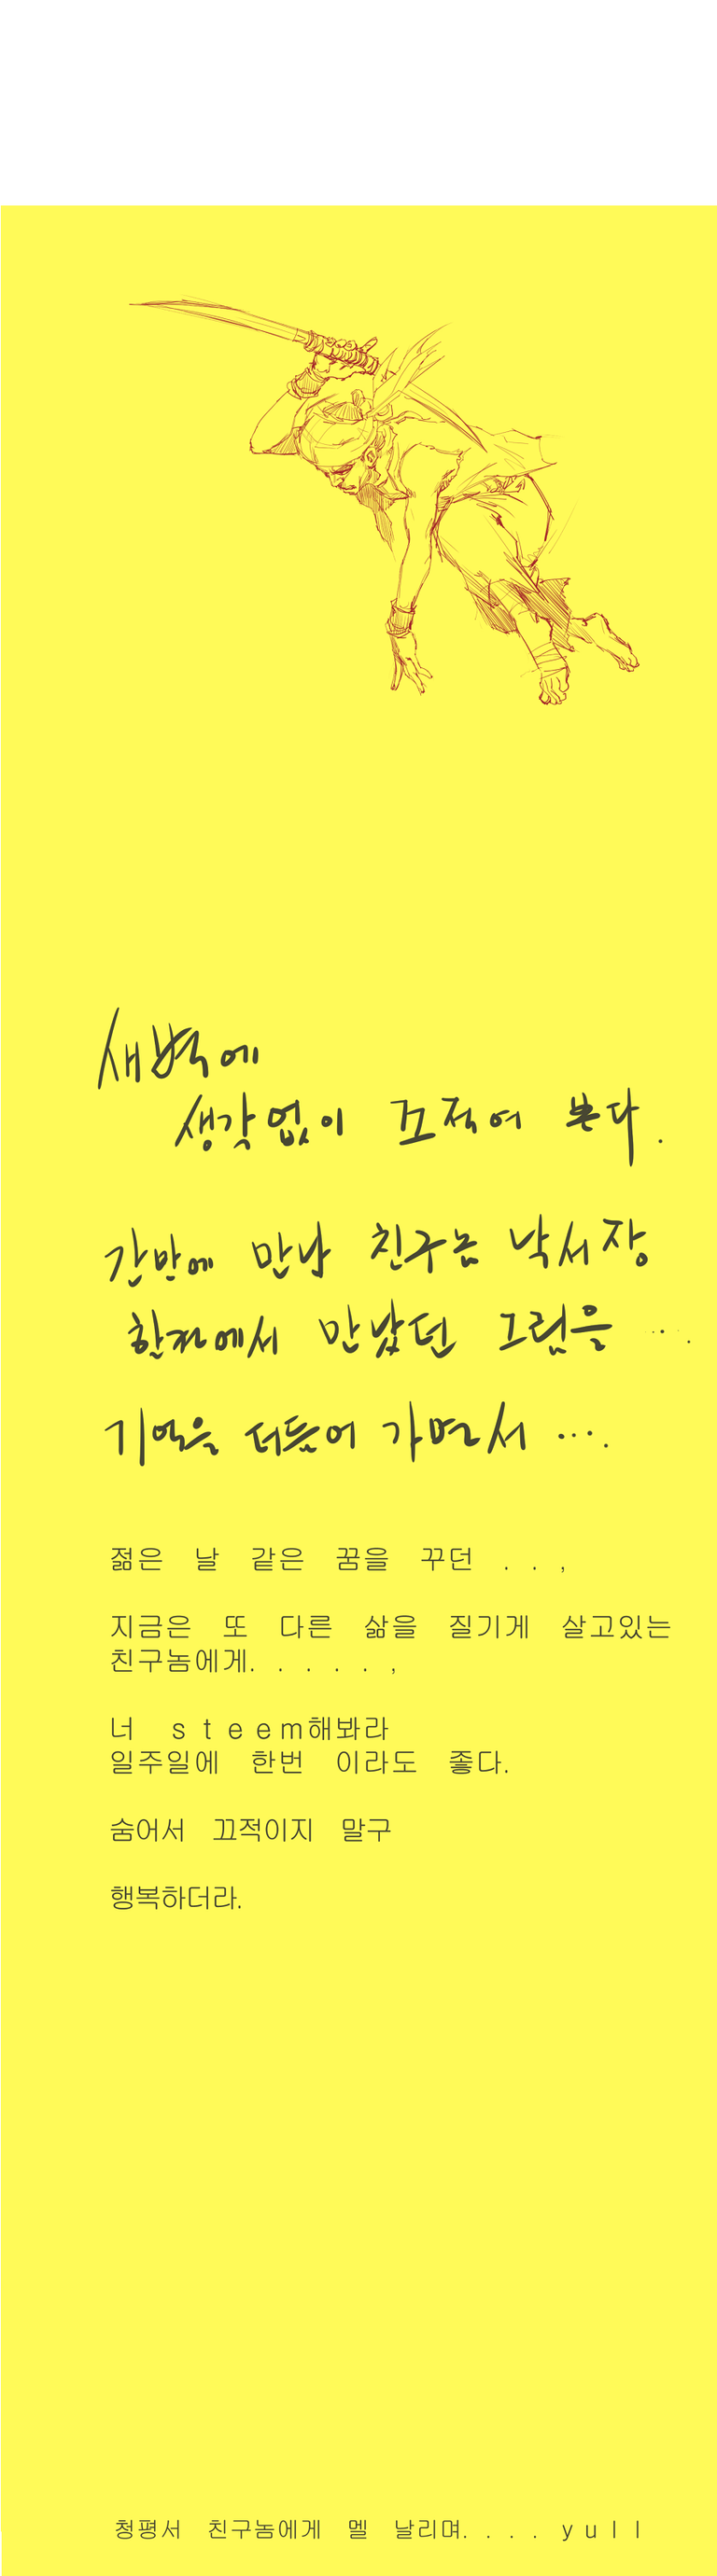 새벽에
생각없이 끄적여 본다.
간만에 만난 친구놈 낙서장
한켠에서 만났던 그림을 ....
기억을 더듬어 가면서 ....
젊은 날 같은 꿈을 꾸던 . . ,
지금은 또 다른 삶을 질기게 살고있는
친구놈에게. . . . . ,
너 steem해봐라
일주일에 한번 이라도 좋다.
숨어서 끄적이지 말구
행복하더라.
청평서 친구놈에게 멜 날리며. . . . yull